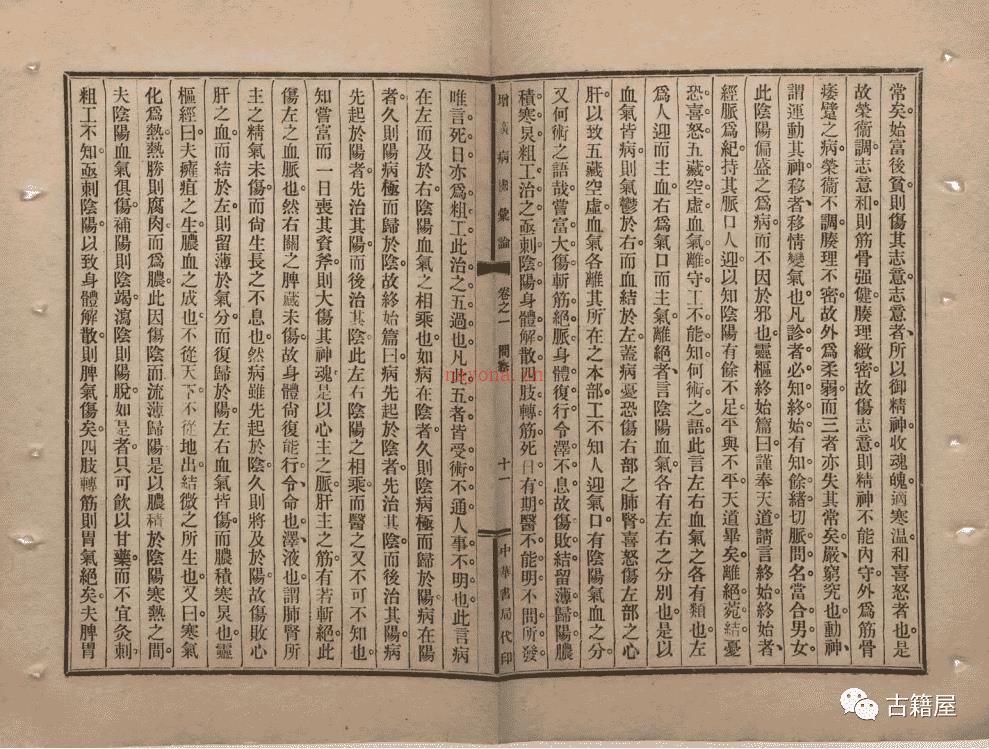 常矣始富後貧則傷其志意志意者所以御精神收魂魄適寒温和喜怒者也是
故榮衞調志意和則筋骨强健腠理緻密故傷志意則精神不能內守外爲筋骨
痿躄之病榮衞不調腠理不密故外爲柔弱而三者亦失其常矣嚴窮究也動神
謂運動其神移者移情變氣也凡診者必知終始有知餘緒切脈問名當合男女
此陰陽偏盛之爲病而不因於邪也靈樞終始篇曰謹奉天道請言終始終始者
經脈爲紀持其脈口人迎以知陰陽有餘不足平與不平天道畢矣離絕菀結憂
恐喜怒五藏空虛血氣離守工不能知何術之語此言左右血氣之各有類也左
爲人迎而主血右爲氣口而主氣離絕者言陰陽血氣各有左右之分別也是以
血氣皆病則氣鬱於右而血結於左蓋病憂恐傷右部之肺腎喜怒傷左部之心
肝以致五藏空虛血氣各離其所在之本部工不知人迎氣口有陰陽氣血之分
又何術之語哉嘗富大傷斬筋絕脈身體復行令澤不息故傷敗結留薄歸陽膿
積寒炅粗工治之亟刺陰陽身體解散四肢轉筋死日有期醫不能明不問所發
卷之一
十一
中華書局代印
唯言死日亦爲粗工此治之五過也凡此五者皆受術不通人事不明也此言病
在左而及於右陰陽血氣之相乘也如病在陰者久則陰病極而歸於陽病在陽
者久則陽病極而歸於陰故終始篇曰病先起於陰者先治其陰而後治其陽病
先起於陽者先治其陽而後治其陰此左右陰陽之相乘而醫之又不可不知也
知嘗富而一日喪其資斧則大傷其神魂是以心主之脈肝主之筋有若斬絕此
傷左之血脈也然右關之脾藏未傷故身體尙復能行令命也澤液也謂肺腎所
主之精氣未傷而尙生長之不息也然病雖先起於陰久則將及於陽故傷敗心
肝之血而結於左則留薄於氣分而復歸於陽左右血氣皆傷而膿積寒炅也靈
樞經曰夫癰疽之生膿血之成也不從天下不從地出結微之所生也又曰寒氣
化爲熱熱勝則腐肉而爲膿此因傷陰而流薄歸陽是以膿積於陰陽寒熱之間
夫陰陽血氣俱傷補陽則陰竭瀉陰則陽脫如是者只可飲以甘藥而不宜灸刺
粗工不知亟刺陰陽以致身體解散則脾氣傷矣四肢轉筋則胃氣絕矣夫脾胃
nayona.cn
古籍屋